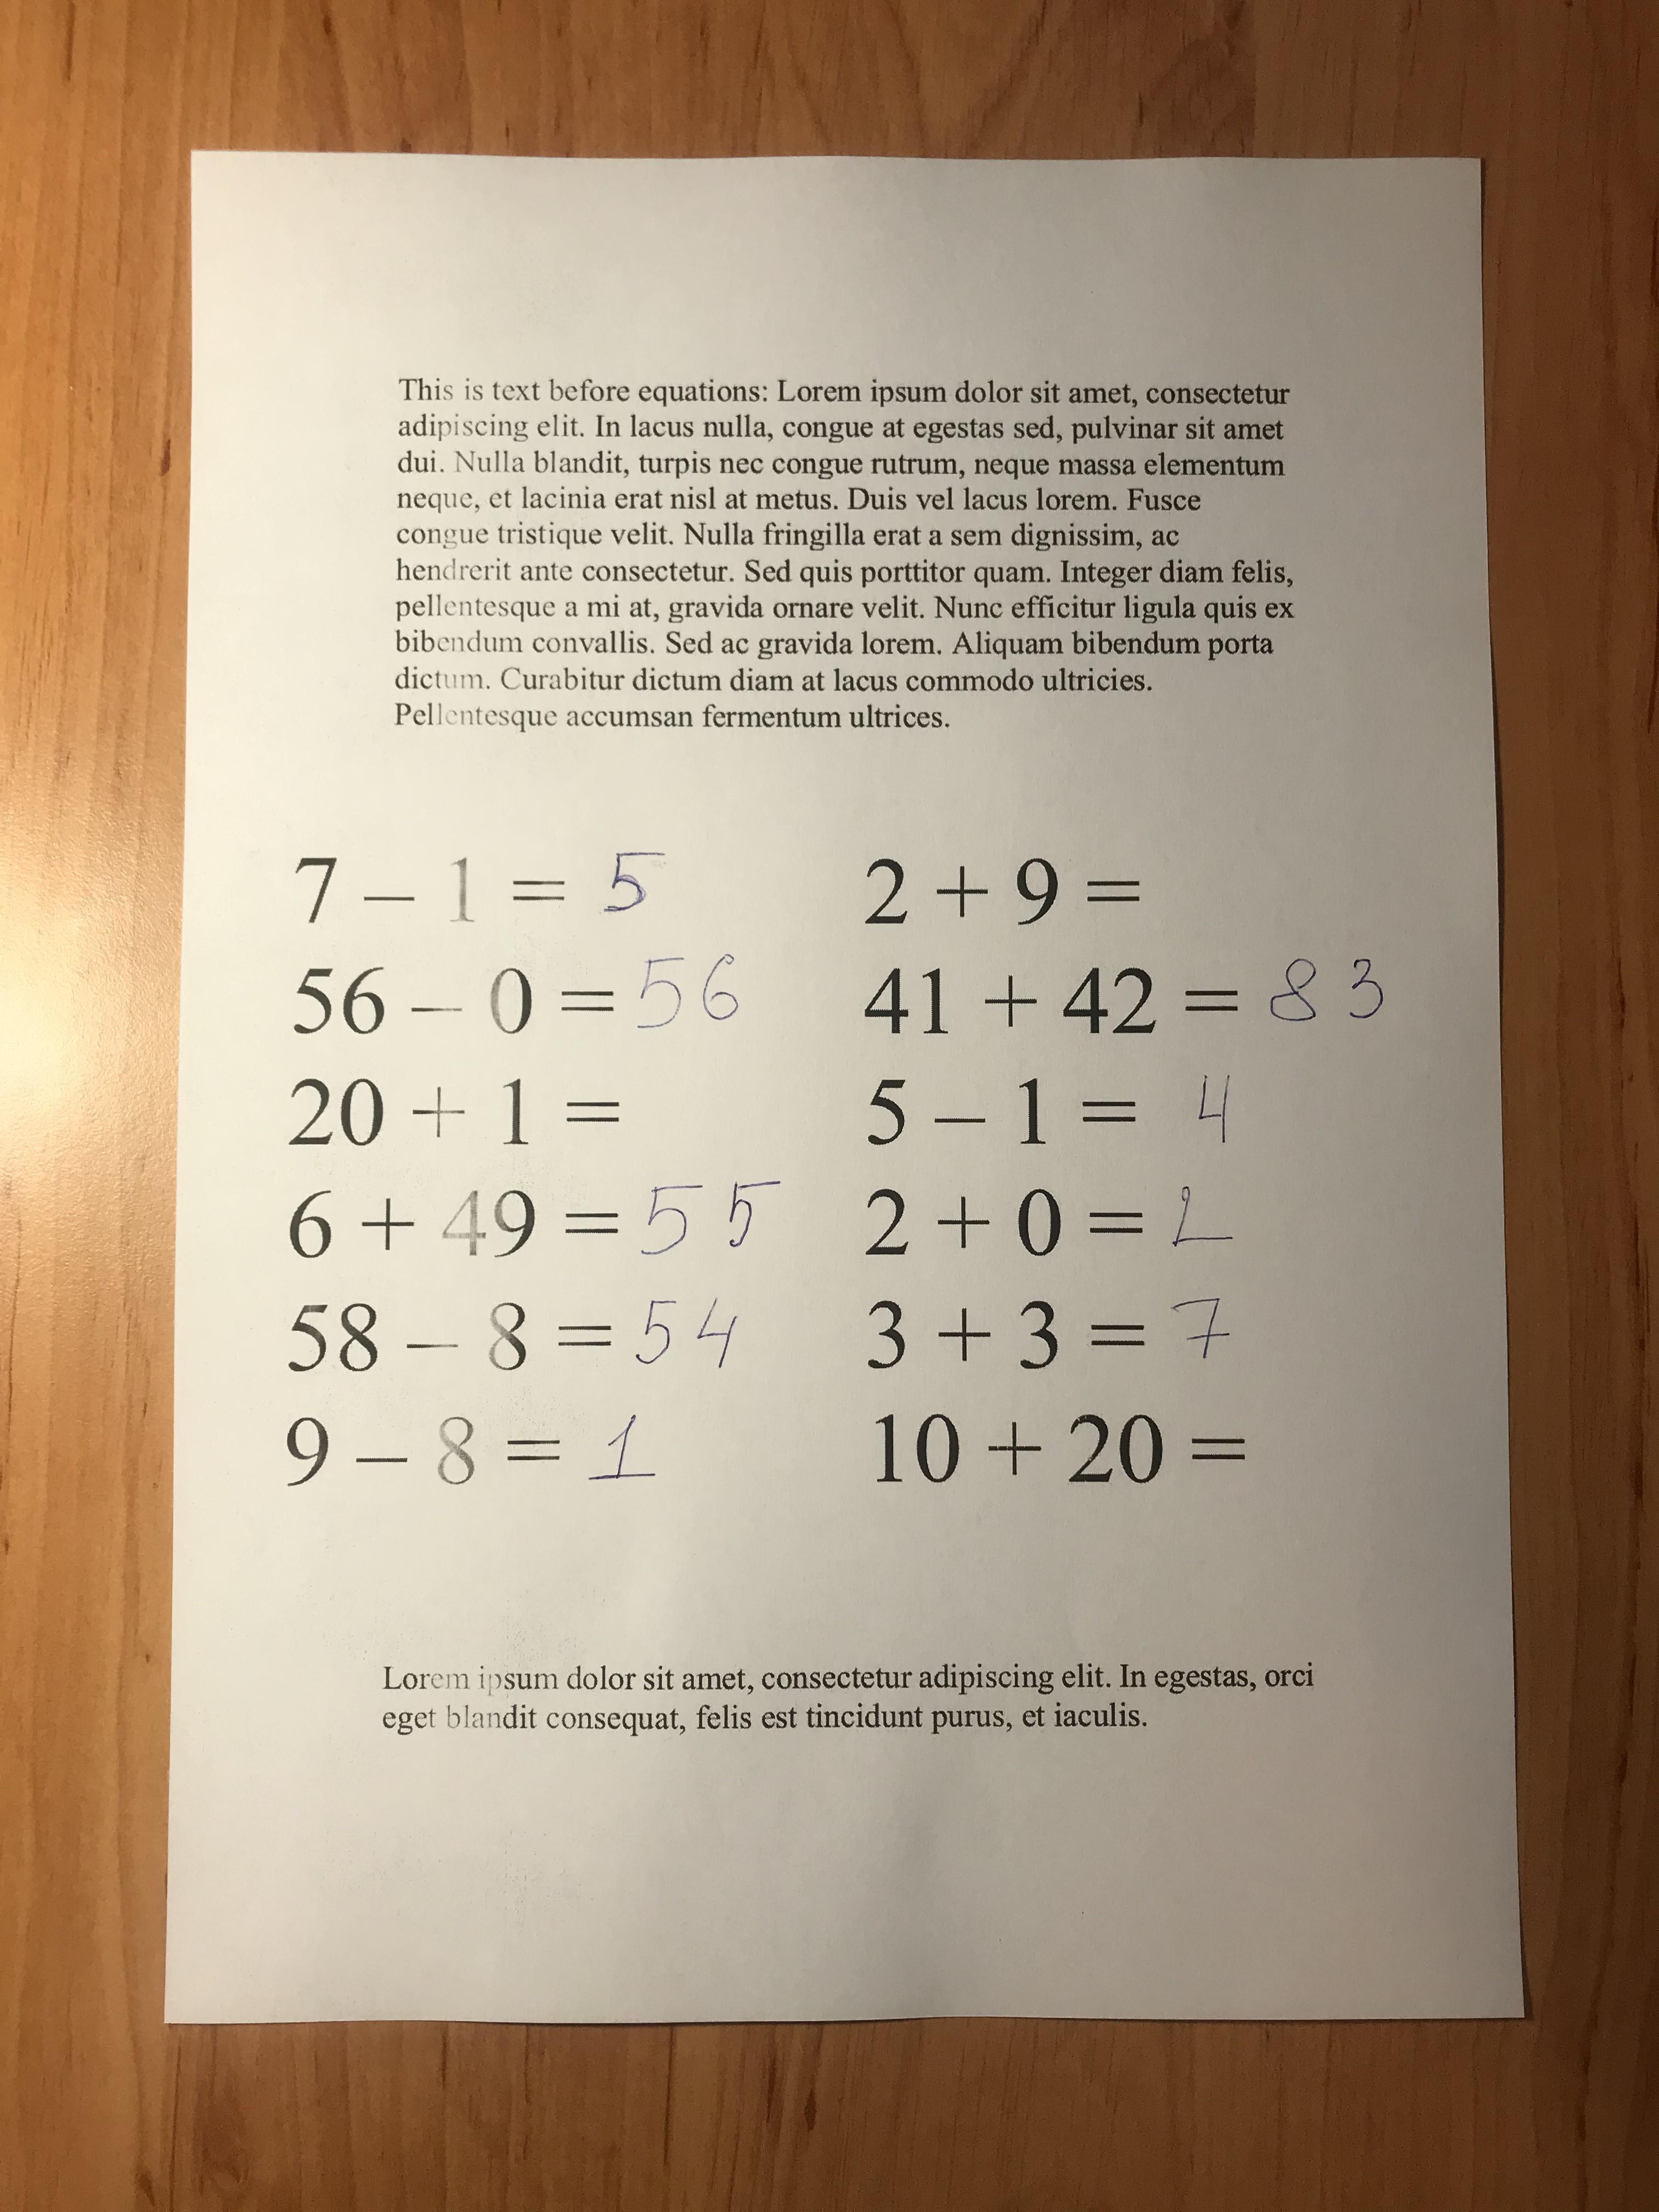 This is text before equations: Lorem ipsum dolor sit amet, consectetur
adipiscing elit. In lacus nulla, congue at egestas sed, pulvinar sit amet
dui. Nulla blandit, turpis nec congue rutrum, neque massa elementum
neque, et lacinia erat nisl at metus. Duis vel lacus lorem. Fusce
congue tristique velit. Nulla fringilla erat a sem dignissim, ac
hendrerit ante consectetur. Sed quis porttitor quam. Integer diam felis,
pellentesque a mi at, gravida ornare velit. Nunc efficitur ligula quis ex
bibendum convallis. Sed ac gravida lorem. Aliquam bibendum porta
dictum. Curabitur dictum diam at lacus commodo ultricies.
Pellentesque accumsan fermentum ultrices.
7 – 1 = 5
2 + 9 =
56 – 0 = 56
41 + 42 = 83
20 + 1 =
5 – 1 = 4
6 + 49 = 55
2 + 0 = 2
58 – 8 = 54
3 + 3 = 7
9 – 8 = 1
10 + 20 =
Lorem ipsum dolor sit amet, consectetur adipiscing elit. In egestas, orci
eget blandit consequat, felis est tincidunt purus, et iaculis.